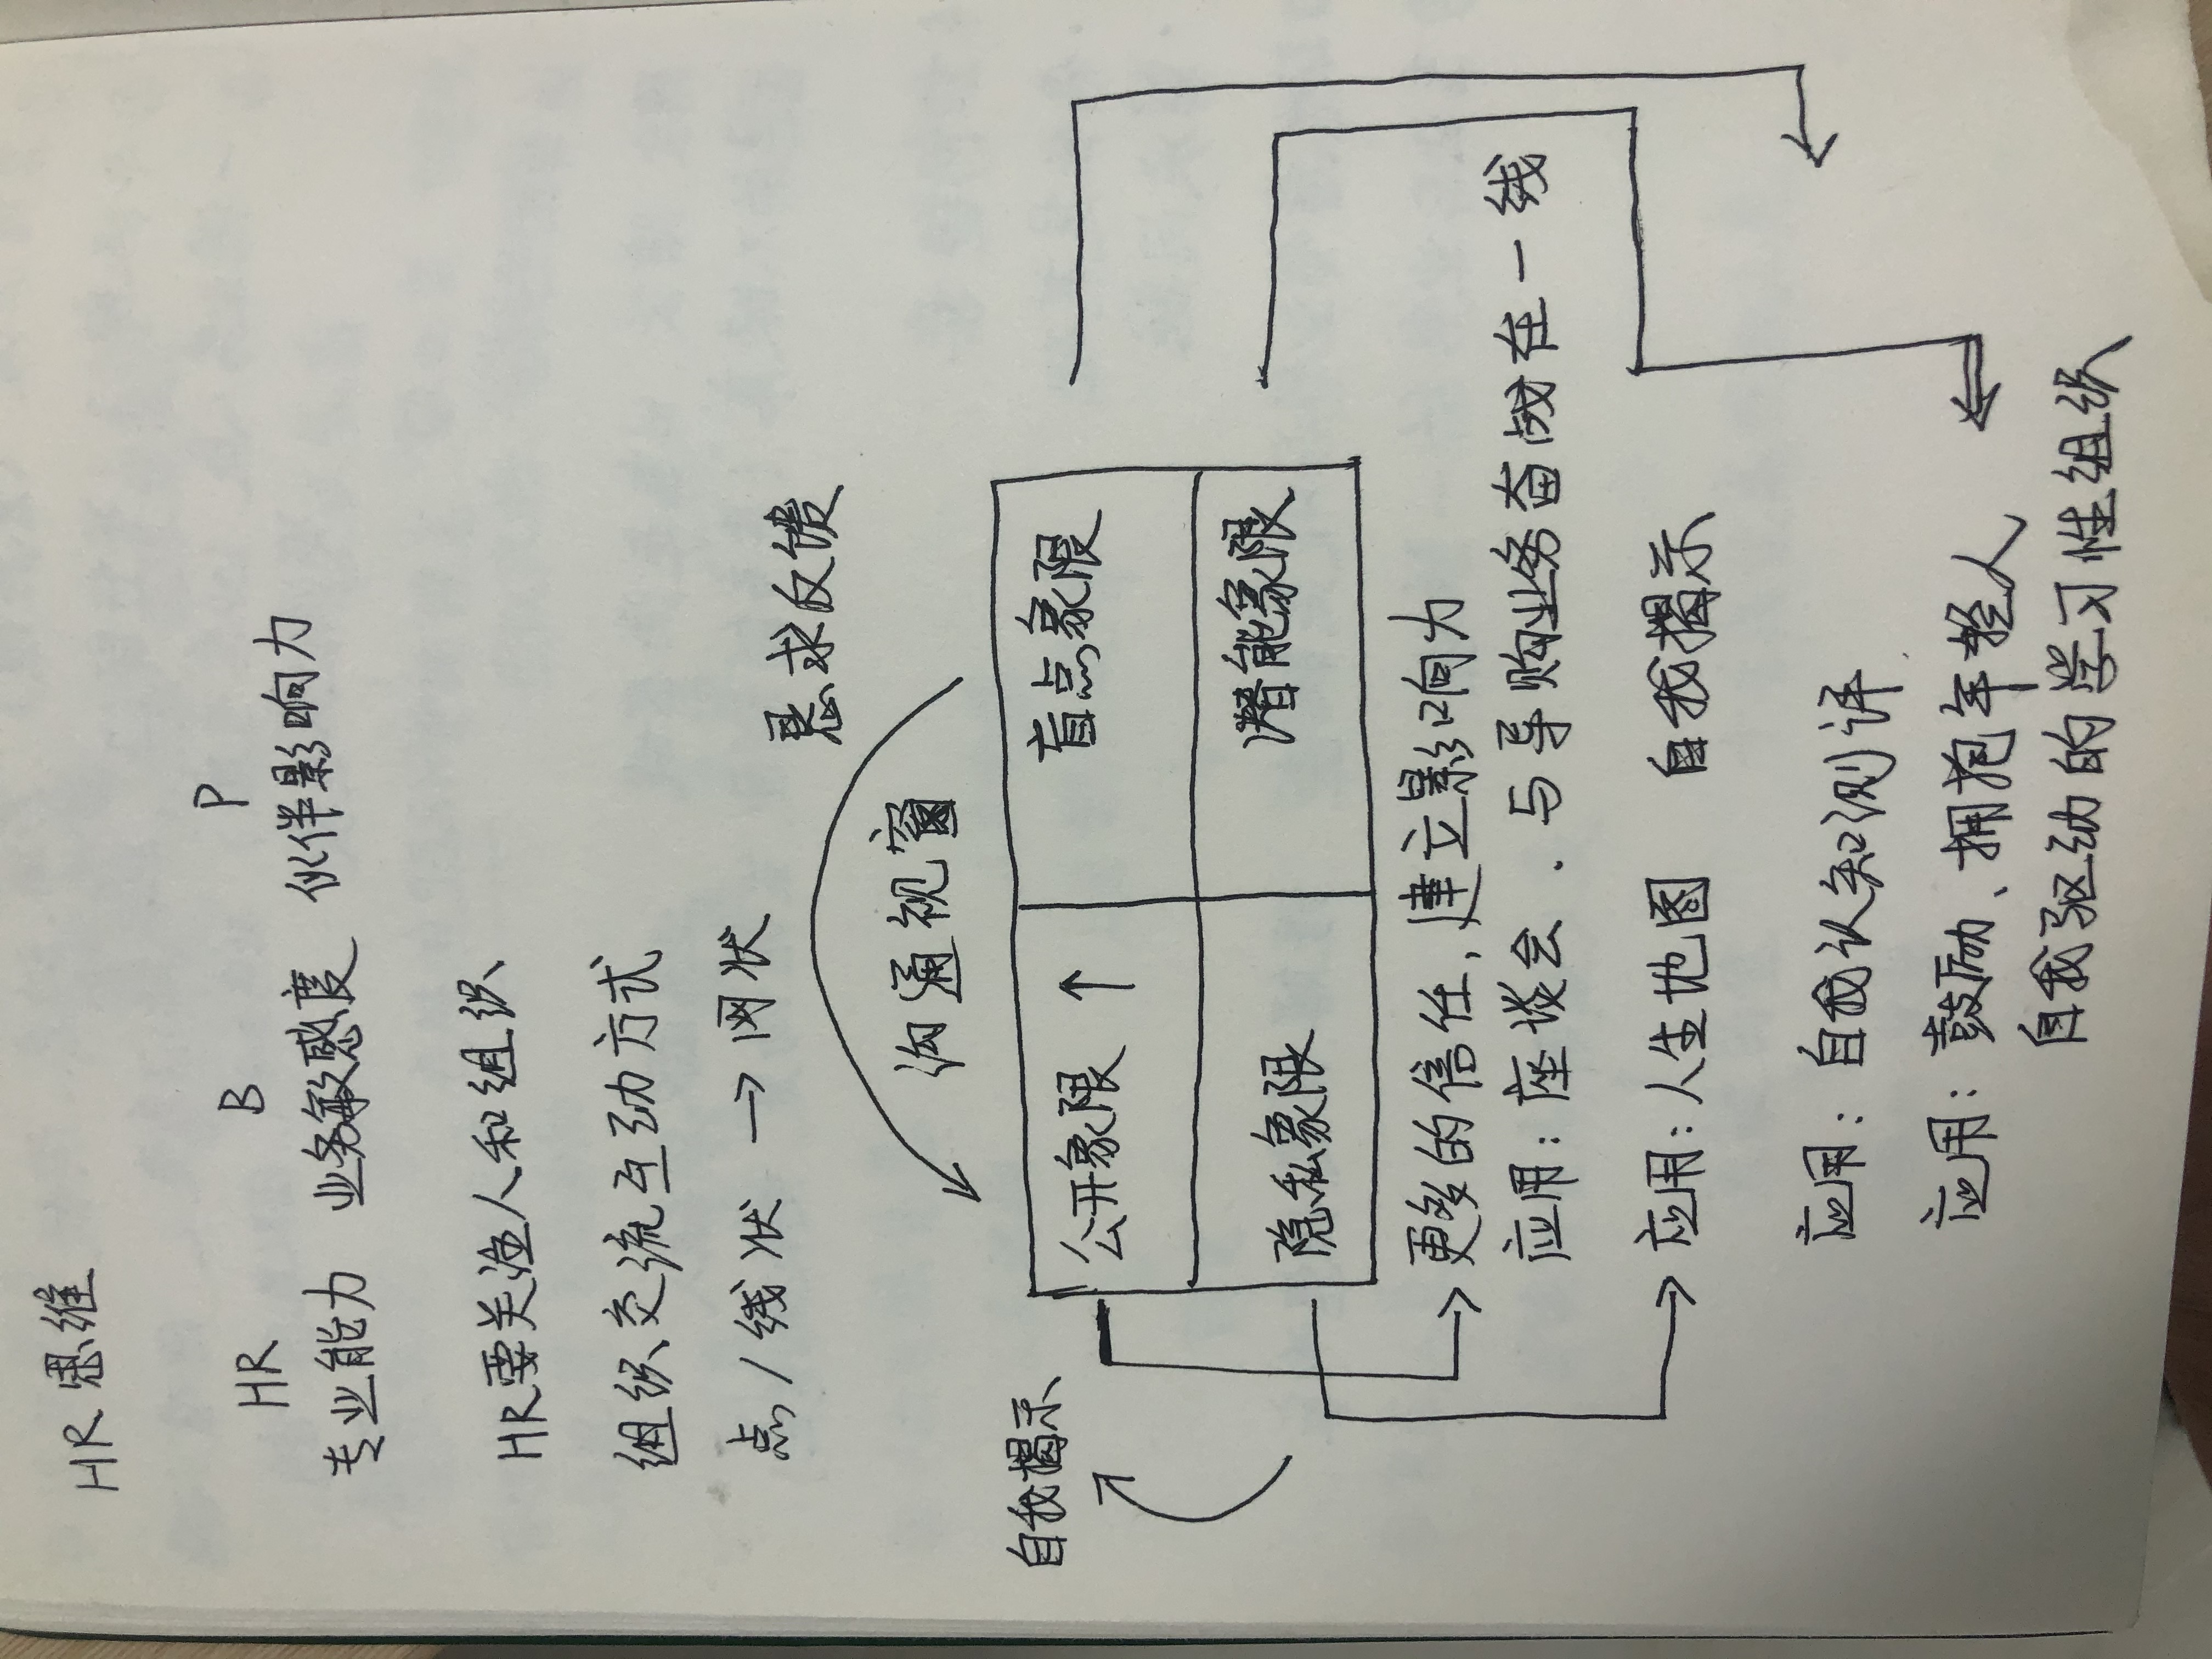 HR思维
HR B P
专业能力 业务敏感度 伙伴影响力
HR要关注人和组织
组织交流互动方式
点/线状 → 网状
恳求反馈
沟通视窗
自我揭示
公开象限 ↑ 盲点象限
隐私象限 潜能象限
更多的信任,建立影响力
应用:座谈会.与导购业务奋战在一线
应用:人生地图 自我揭示
应用:自我认知测评
应用:鼓励、拥抱年轻人
自我驱动的学习性组织